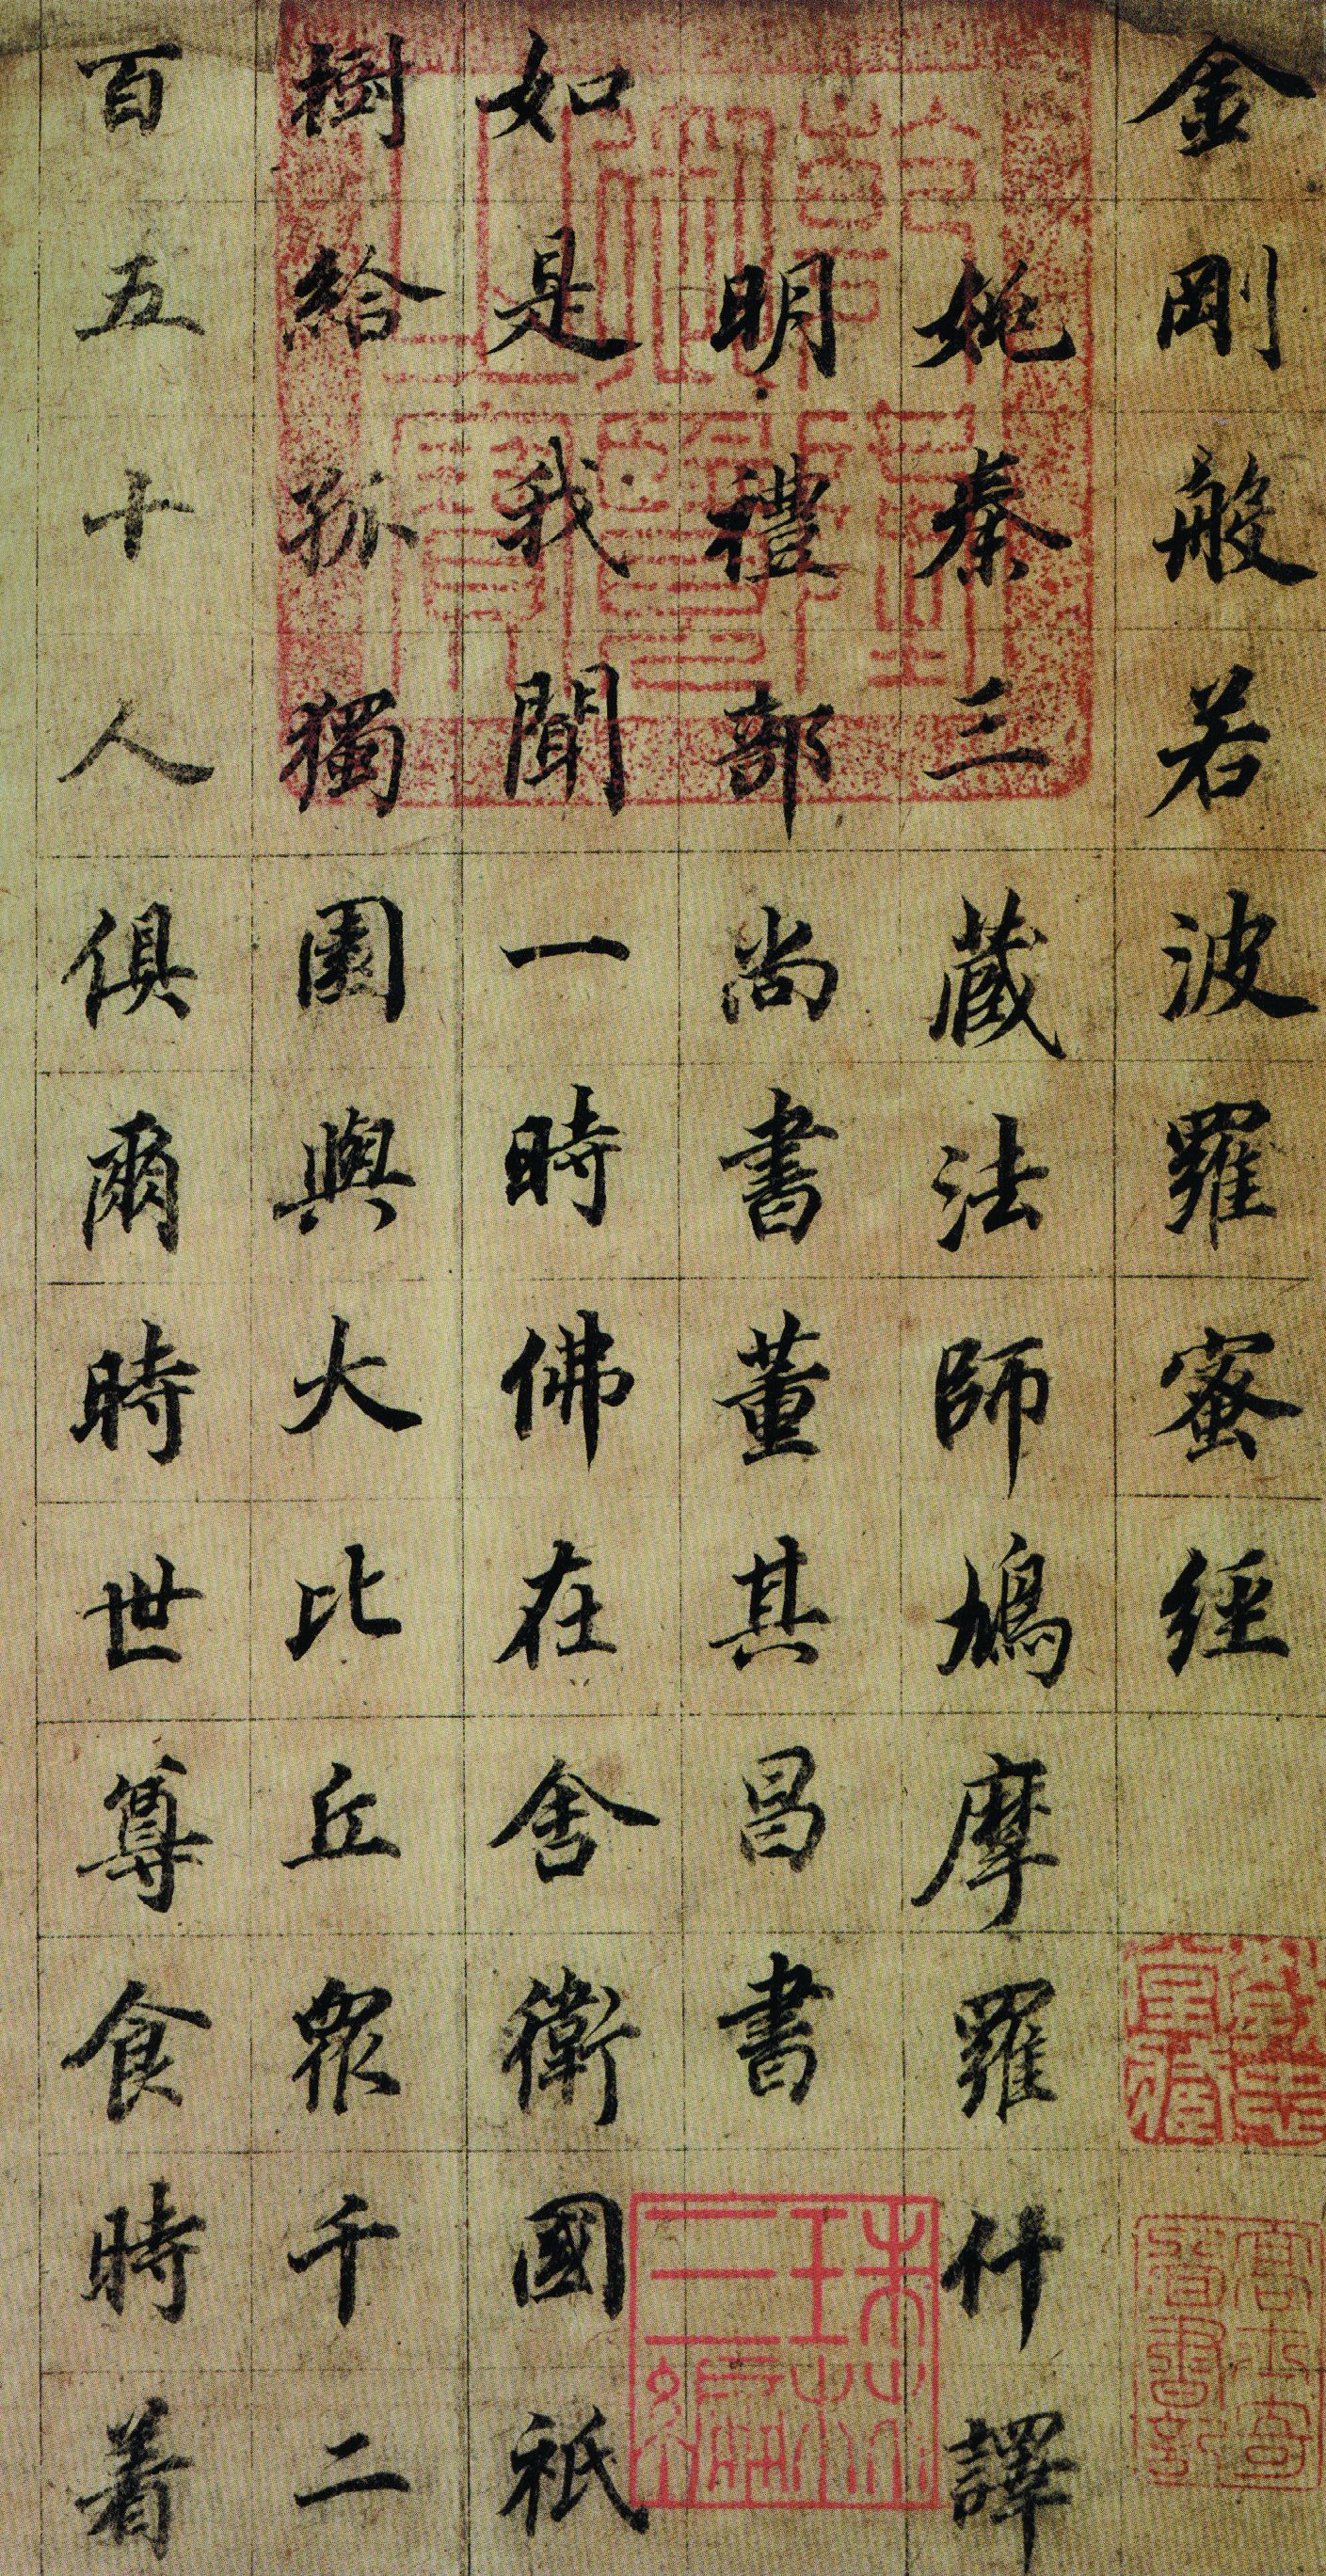 金剛般若波羅蜜經
姚秦三藏法師鳩摩羅什譯
明禮部尚書董其昌書
如是我聞一時佛在舍衛國祇
樹給孤獨園與大比丘眾千二
百五十人俱爾時世尊食時着
乾隆御覽之寶
珠林三編